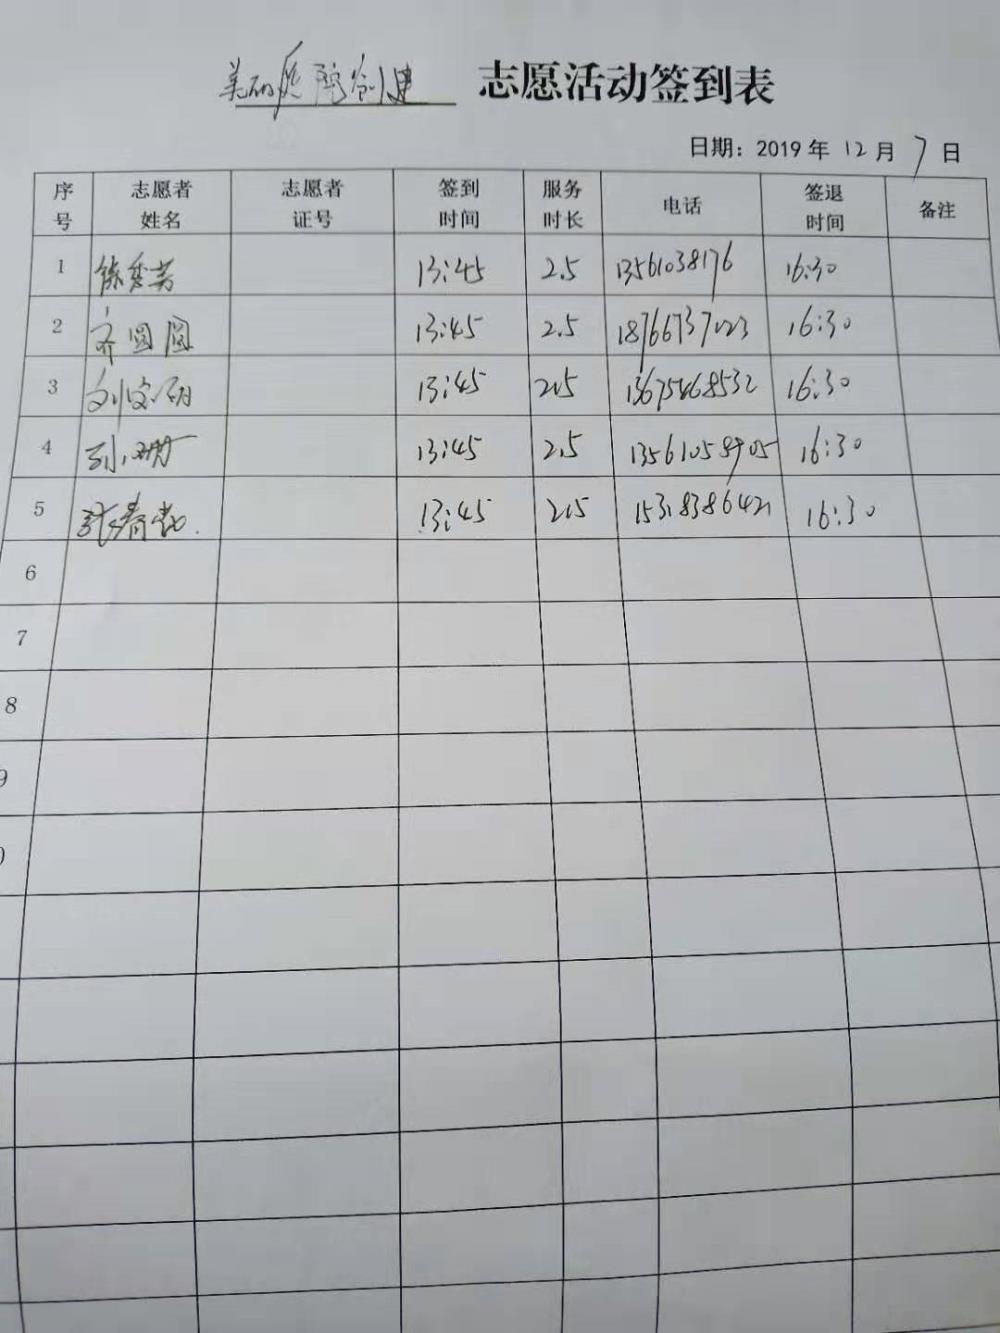 美丽庭院创建 志愿活动签到表
日期：2019年12月7日
序号 志愿者姓名 志愿者证号 签到时间 服务时长 电话 签退时间 备注
1 13:45 2.5 13561038176 16:30
2 齐圆圆 13:45 2.5 16:30
3 13:45 2.5 13675468532 16:30
4 13:45 2.5 13561058905 16:30
5 13:45 2.5 15318386421 16:30
6
7
8